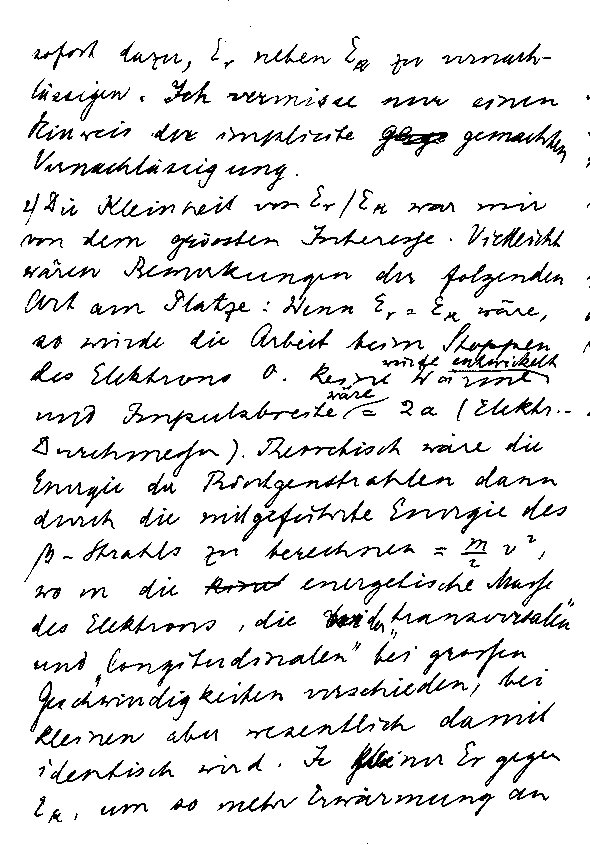 sofort dazu, Er neben Eα zu vernach-
lässigen. Ich vermisse nur einen
Hinweis der implicite gemachten
Vernachlässigung.
2) Die Kleinheit von Er/Eα war mir
von dem grössten Interesse. Vielleicht
wären Bemerkungen der folgenden
Art am Platze: Wenn Er = Eα wäre,
so würde die Arbeit beim Stoppen
des Elektrons 0. keine Wärme würde entwickelt
und Impulsbreite wäre = 2a (Elektr.-
Durchmesser). Theoretisch wäre die
Energie der Röntgenstrahlen dann
durch die mitgeführte Energie des
β-Strahls zu berechnen = m/2 v²,
wo m die energetische Masse
des Elektrons, die von der „transversalen"
und „longitudinalen" bei grossen
Geschwindigkeiten verschieden, bei
kleinen aber wesentlich damit
identisch wird. Je kleiner Er gegen
Eα, um so mehr Erwärmung an